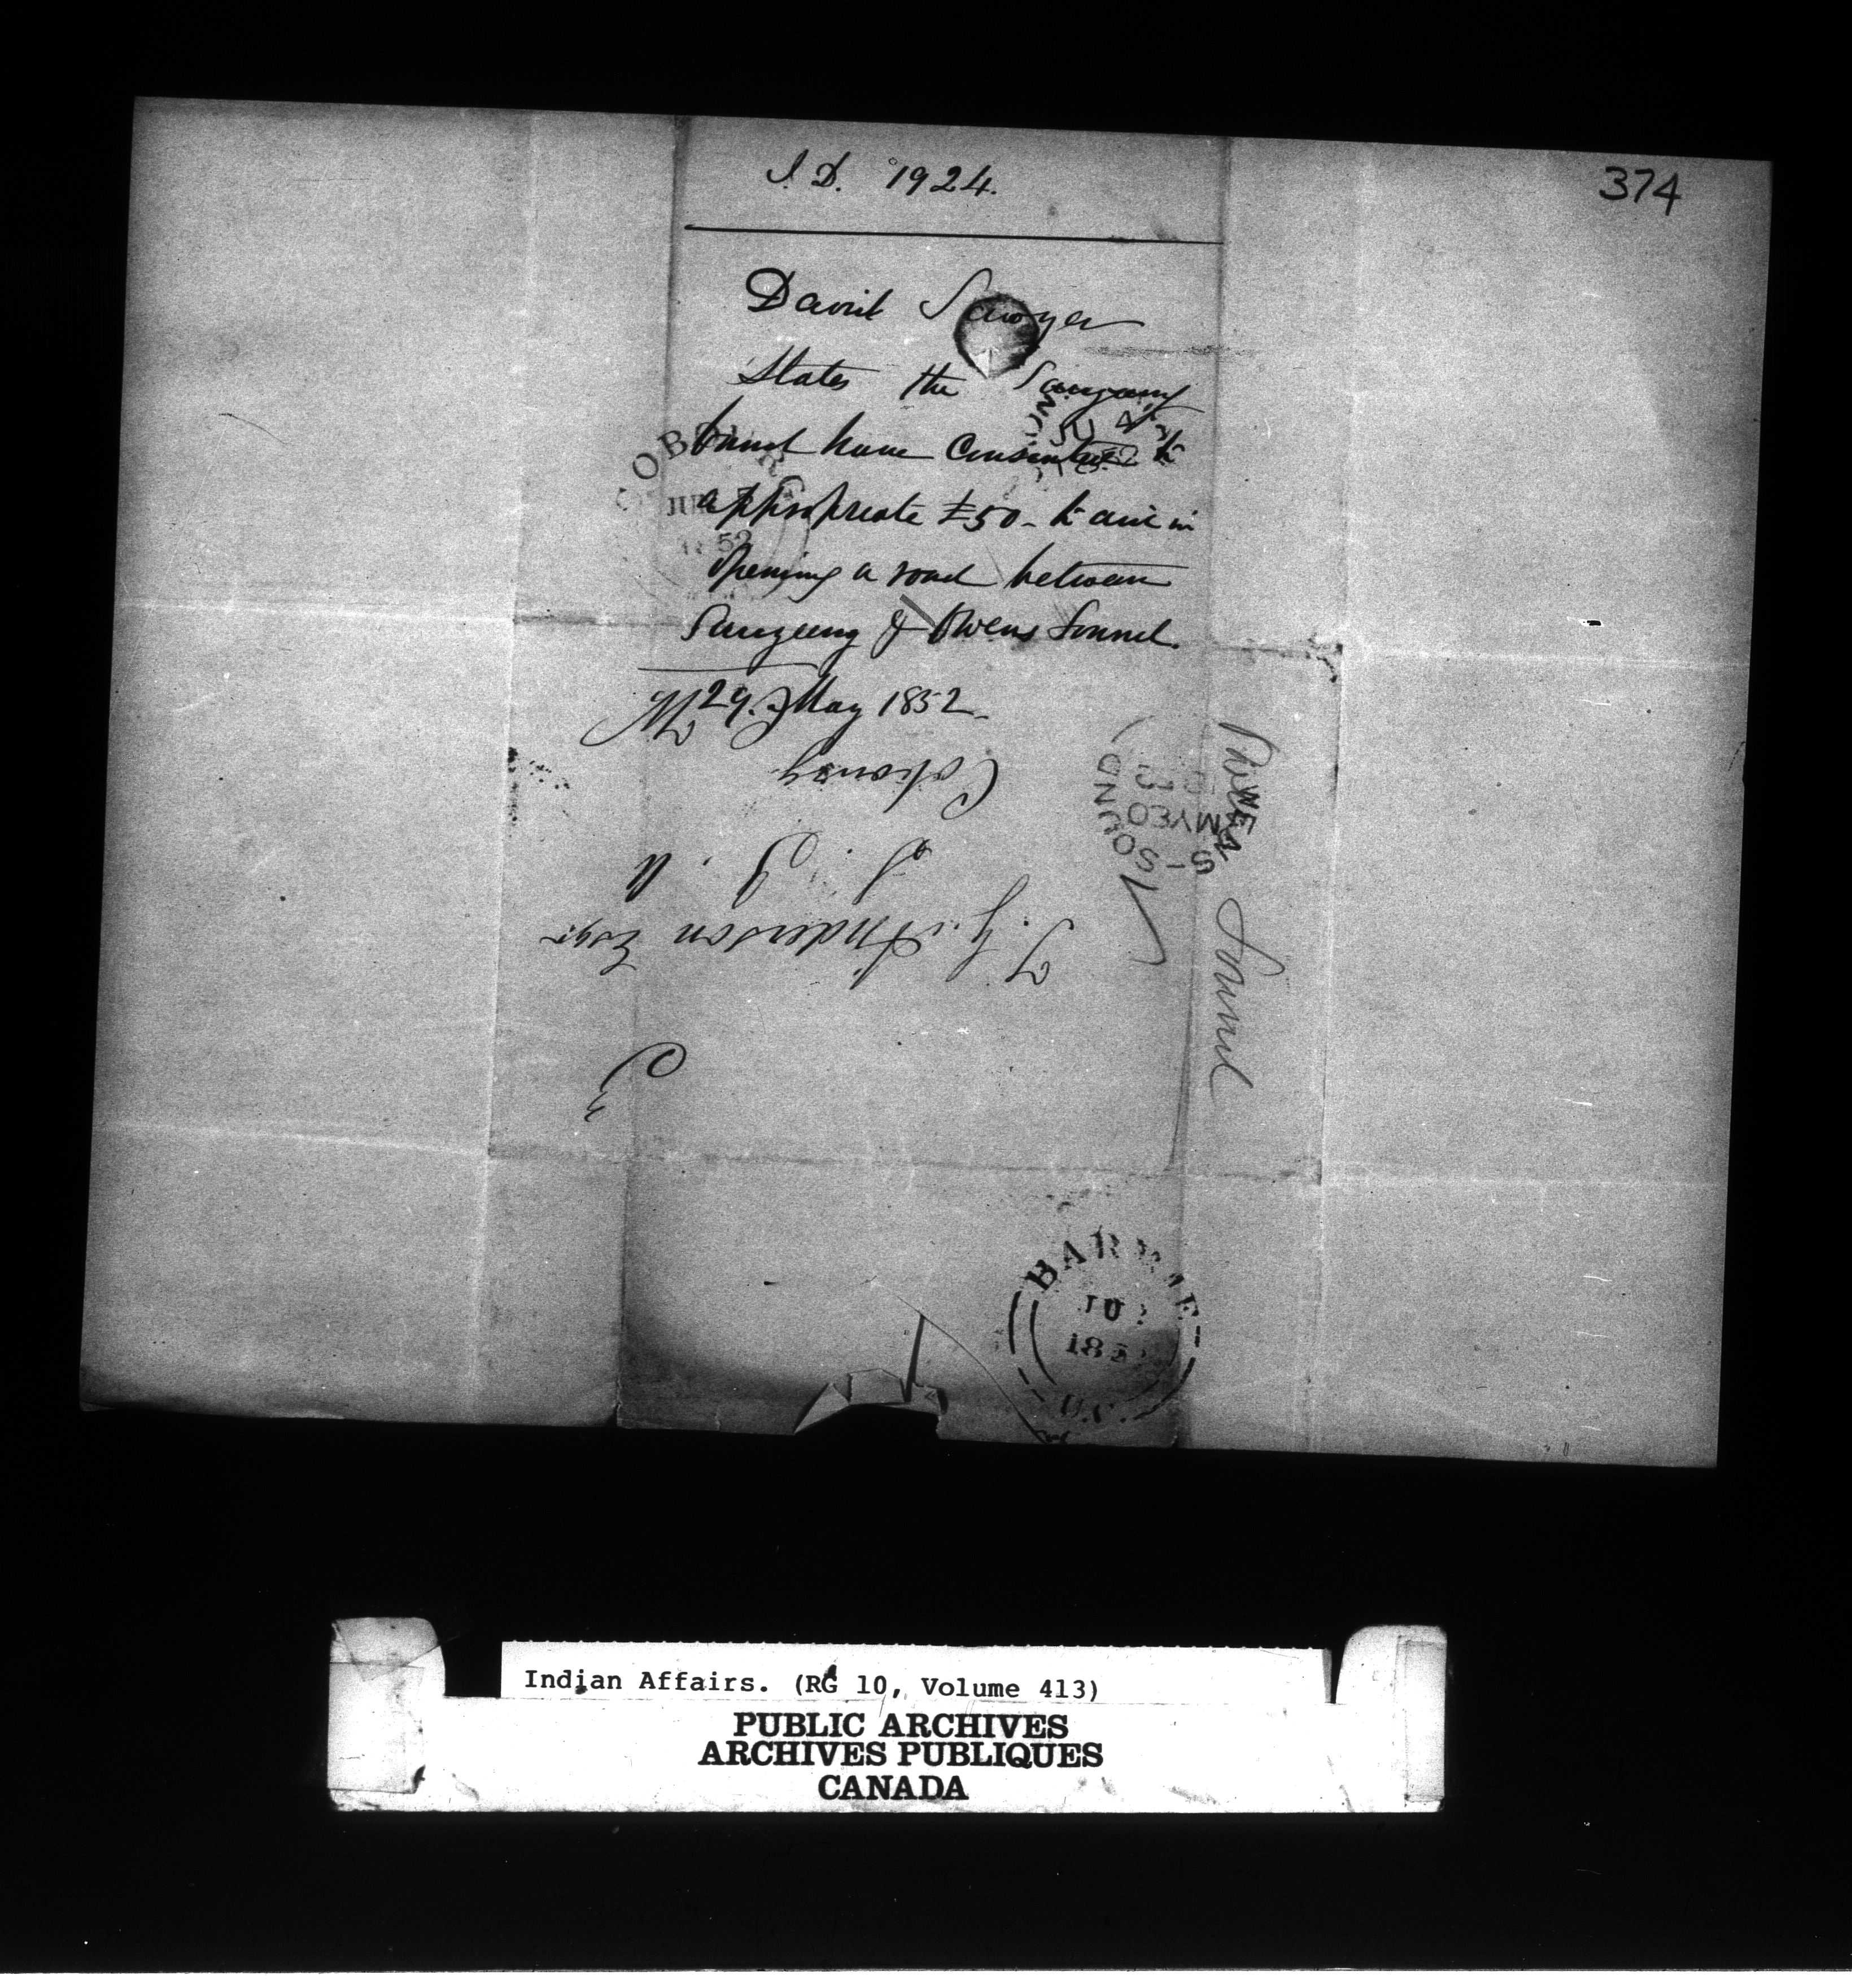 374
I.D. 1924.
David Sawyer
States the Saugeeng
band have consented to
appropriate £50 - to aid in
Opening a road between
Saugeeng & Owens Sound.
29. May 1852
T. G. Anderson Esqr
S. I. A
Cobourg
Owens Sound
COBOURG
52
OWEN'S-SOUND
BARRIE
185
U.C.
Indian Affairs. (RG 10, Volume 413)
PUBLIC ARCHIVES
ARCHIVES PUBLIQUES
CANADA